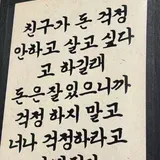 친구가 돈 걱정
안하고 살고 싶다
고 하길래
돈은 잘 있으니까
걱정 하지 말고
너나 걱정하라고